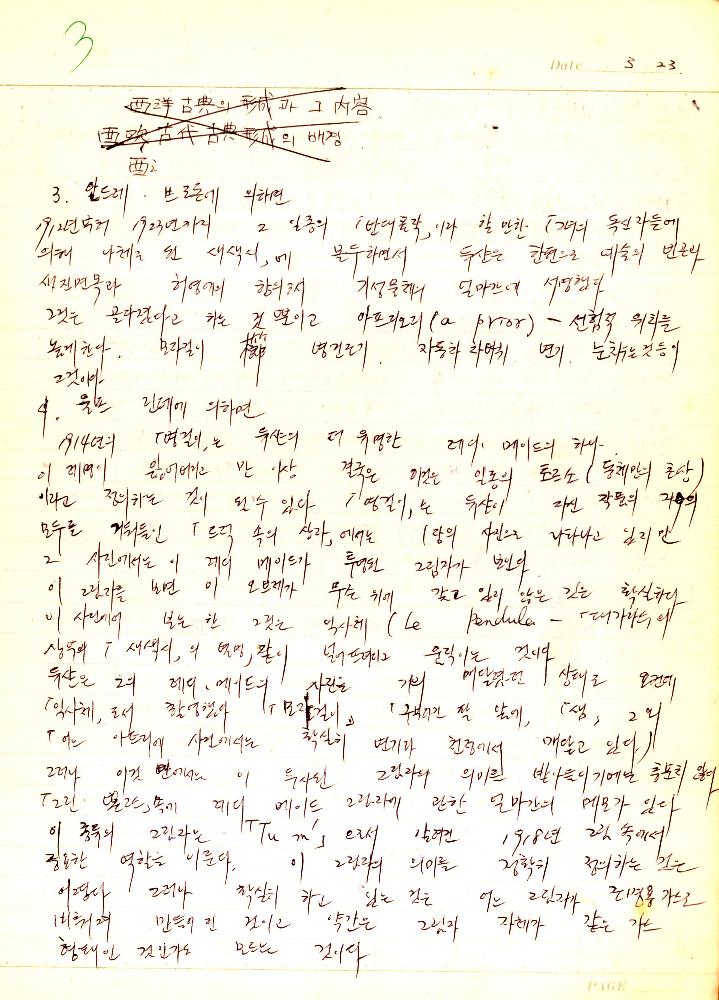 3
Date 3 23.
西洋古典의 形成과 그 內容
西歐古代古典形成의 배경
西
3. 앙드레·브르통에 의하면
1912년부터 1923년까지 그 일종의 「반대륙락」이라 할 만한 「그녀의 독신자들에
의해 나체가 된 새색시」에 몰두하면서 뒤샹은 한편으로 예술의 빈곤과
허영에의 항의로서 기성물체의 얼마간에 서명했다
그것은 골라졌다고 하는 것 뿐이고 아프리오리 (a prior) – 선험적 위치를
높게한다. 모자걸이 병건조기. 변기. 눈치우는것등이
그것이다
4. 울프 린데에 의하면
1914년의 「병걸이」는 뒤샹의 더 유명한 레디·메이드의 하나.
이 제명이 결국은 이것은 일종의 토르소 (동체만의 조상)
이라고 정의하는 것이 될 수 있다 「병걸이」는 뒤샹이 자신 작품의
모두를 「트렁크 속의 상자」에서는 1장의 사진으로 나타나고 있지만
그 사진에서는 이 레디 메이드가 투영된 그림자가 보인다.
이 그림자를 보면 이 오브제가 무슨 위에 있지 않은 것은 확실하다
이 사진에서 보는 한 그것은 익사체 (Le Pendula – 「대가라스」의
상부의 「새색시」의 별명」같이 늘어뜨려지고 움직이는 것이다
뒤샹은 그의 레디·메이드의 사진을 거의 매달렸던 상태로 오컨데
「익사체」로서 촬영했다 「모자걸이」 「부러진 팔 앞에」 「샘」 그 외
「어느 아뜨리에 사진에서는 확실히 변기가 천정에서 매달고 있다」
그러나 이것 만에서는 이 투사된 그림자의 의미를 받아들이기에는 축포리 않다
「그린·박스」속에 레디 메이드 그림자에 관한 얼마간의 메모가 있다
이 종류의 그림자는 「Tu m'」으로서 알려진 1918년 그림 속에서
중요한 역할을 이룬다. 이 그림자의 의미를 정확히 정의하는 것은
어렵다 그러나 확실히 하고 싶은 것은 어느 그림자가 조명용 가스로
비춰져 만들어진 것이고 약간은 그림자 자체가 같은 가스
형태인 것인가도 모르는 것이다
PAGE